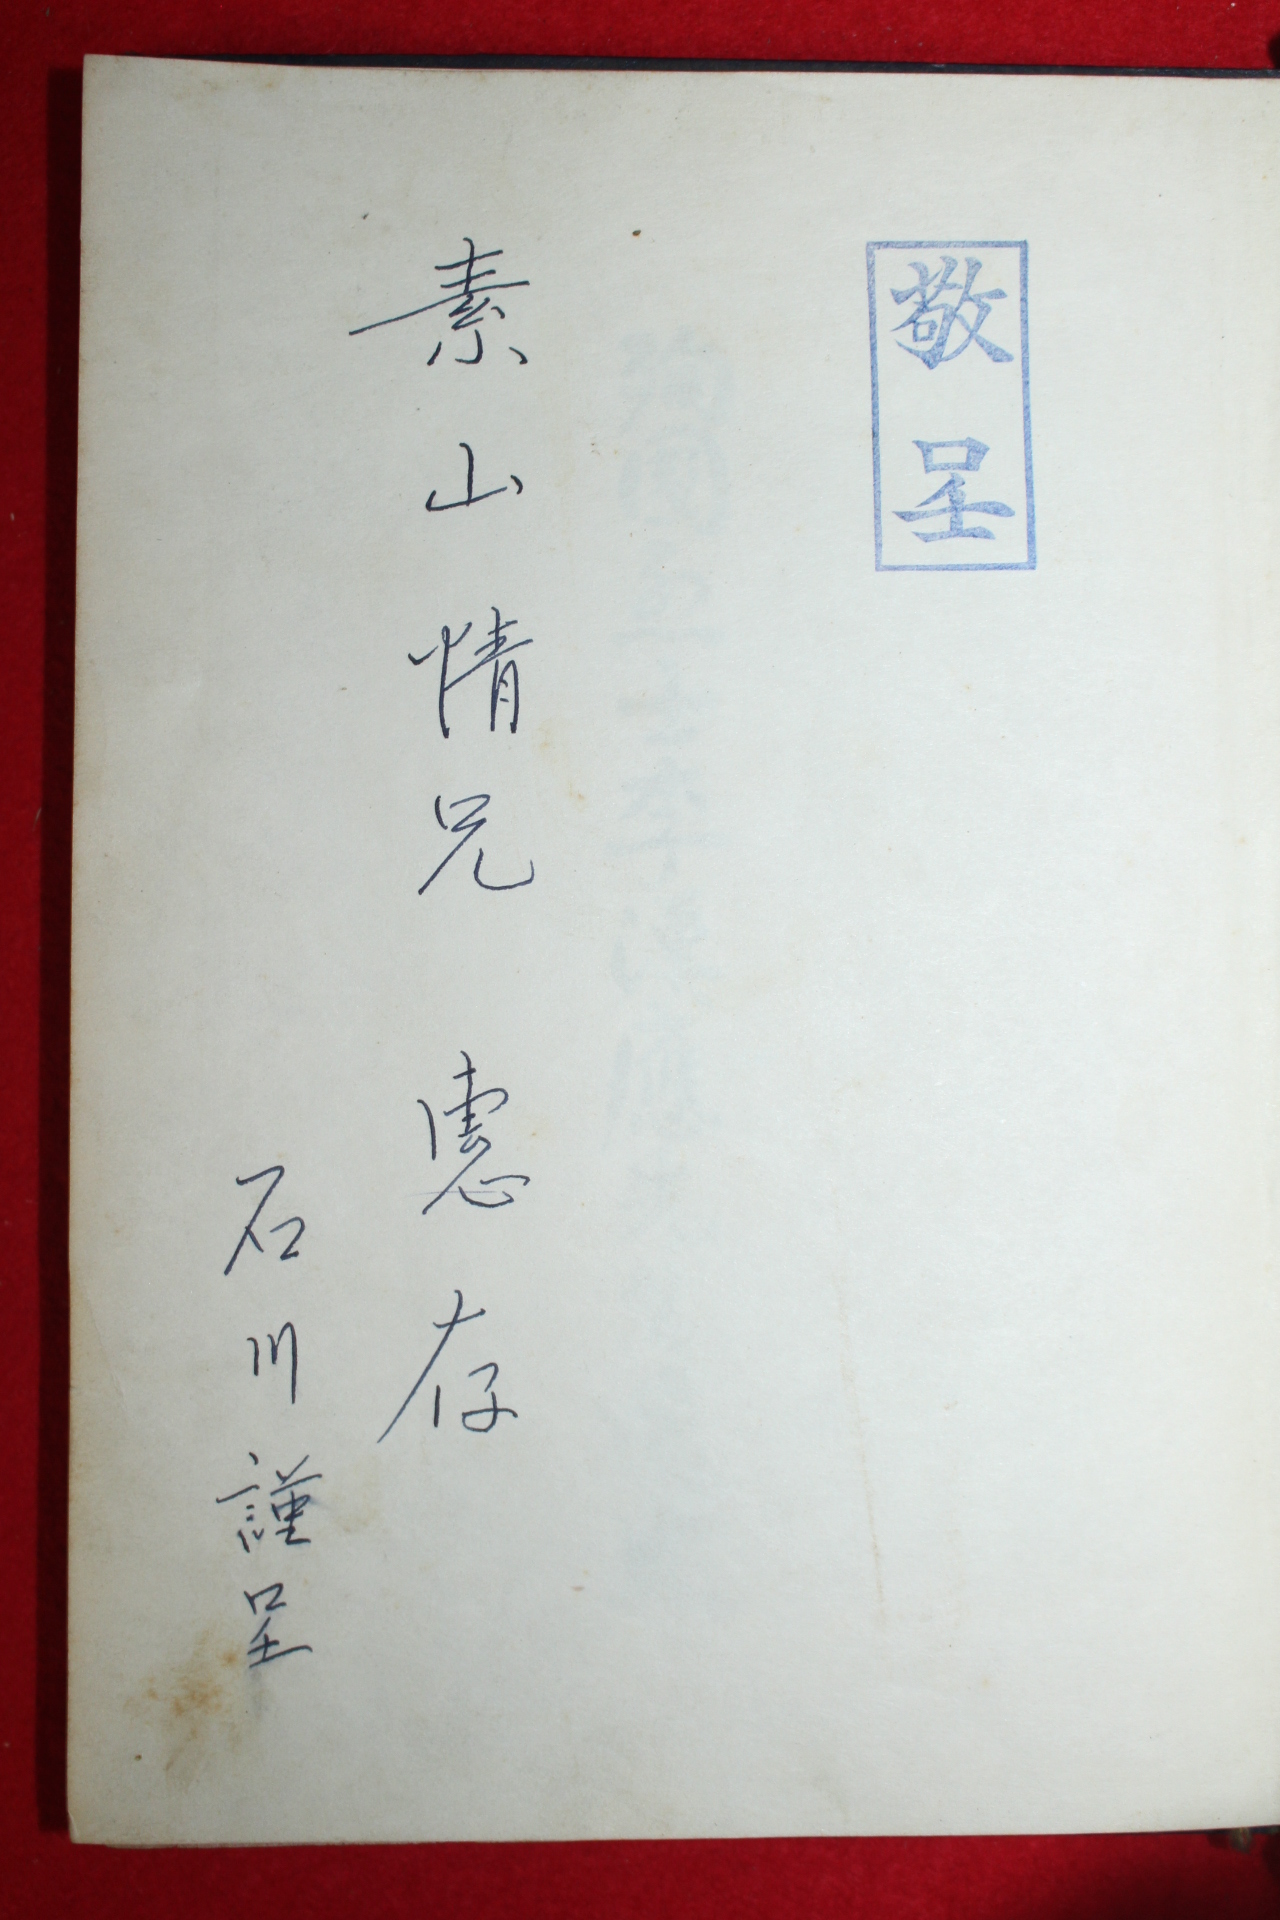 敬呈
素山情兄 惠存
石川謹呈